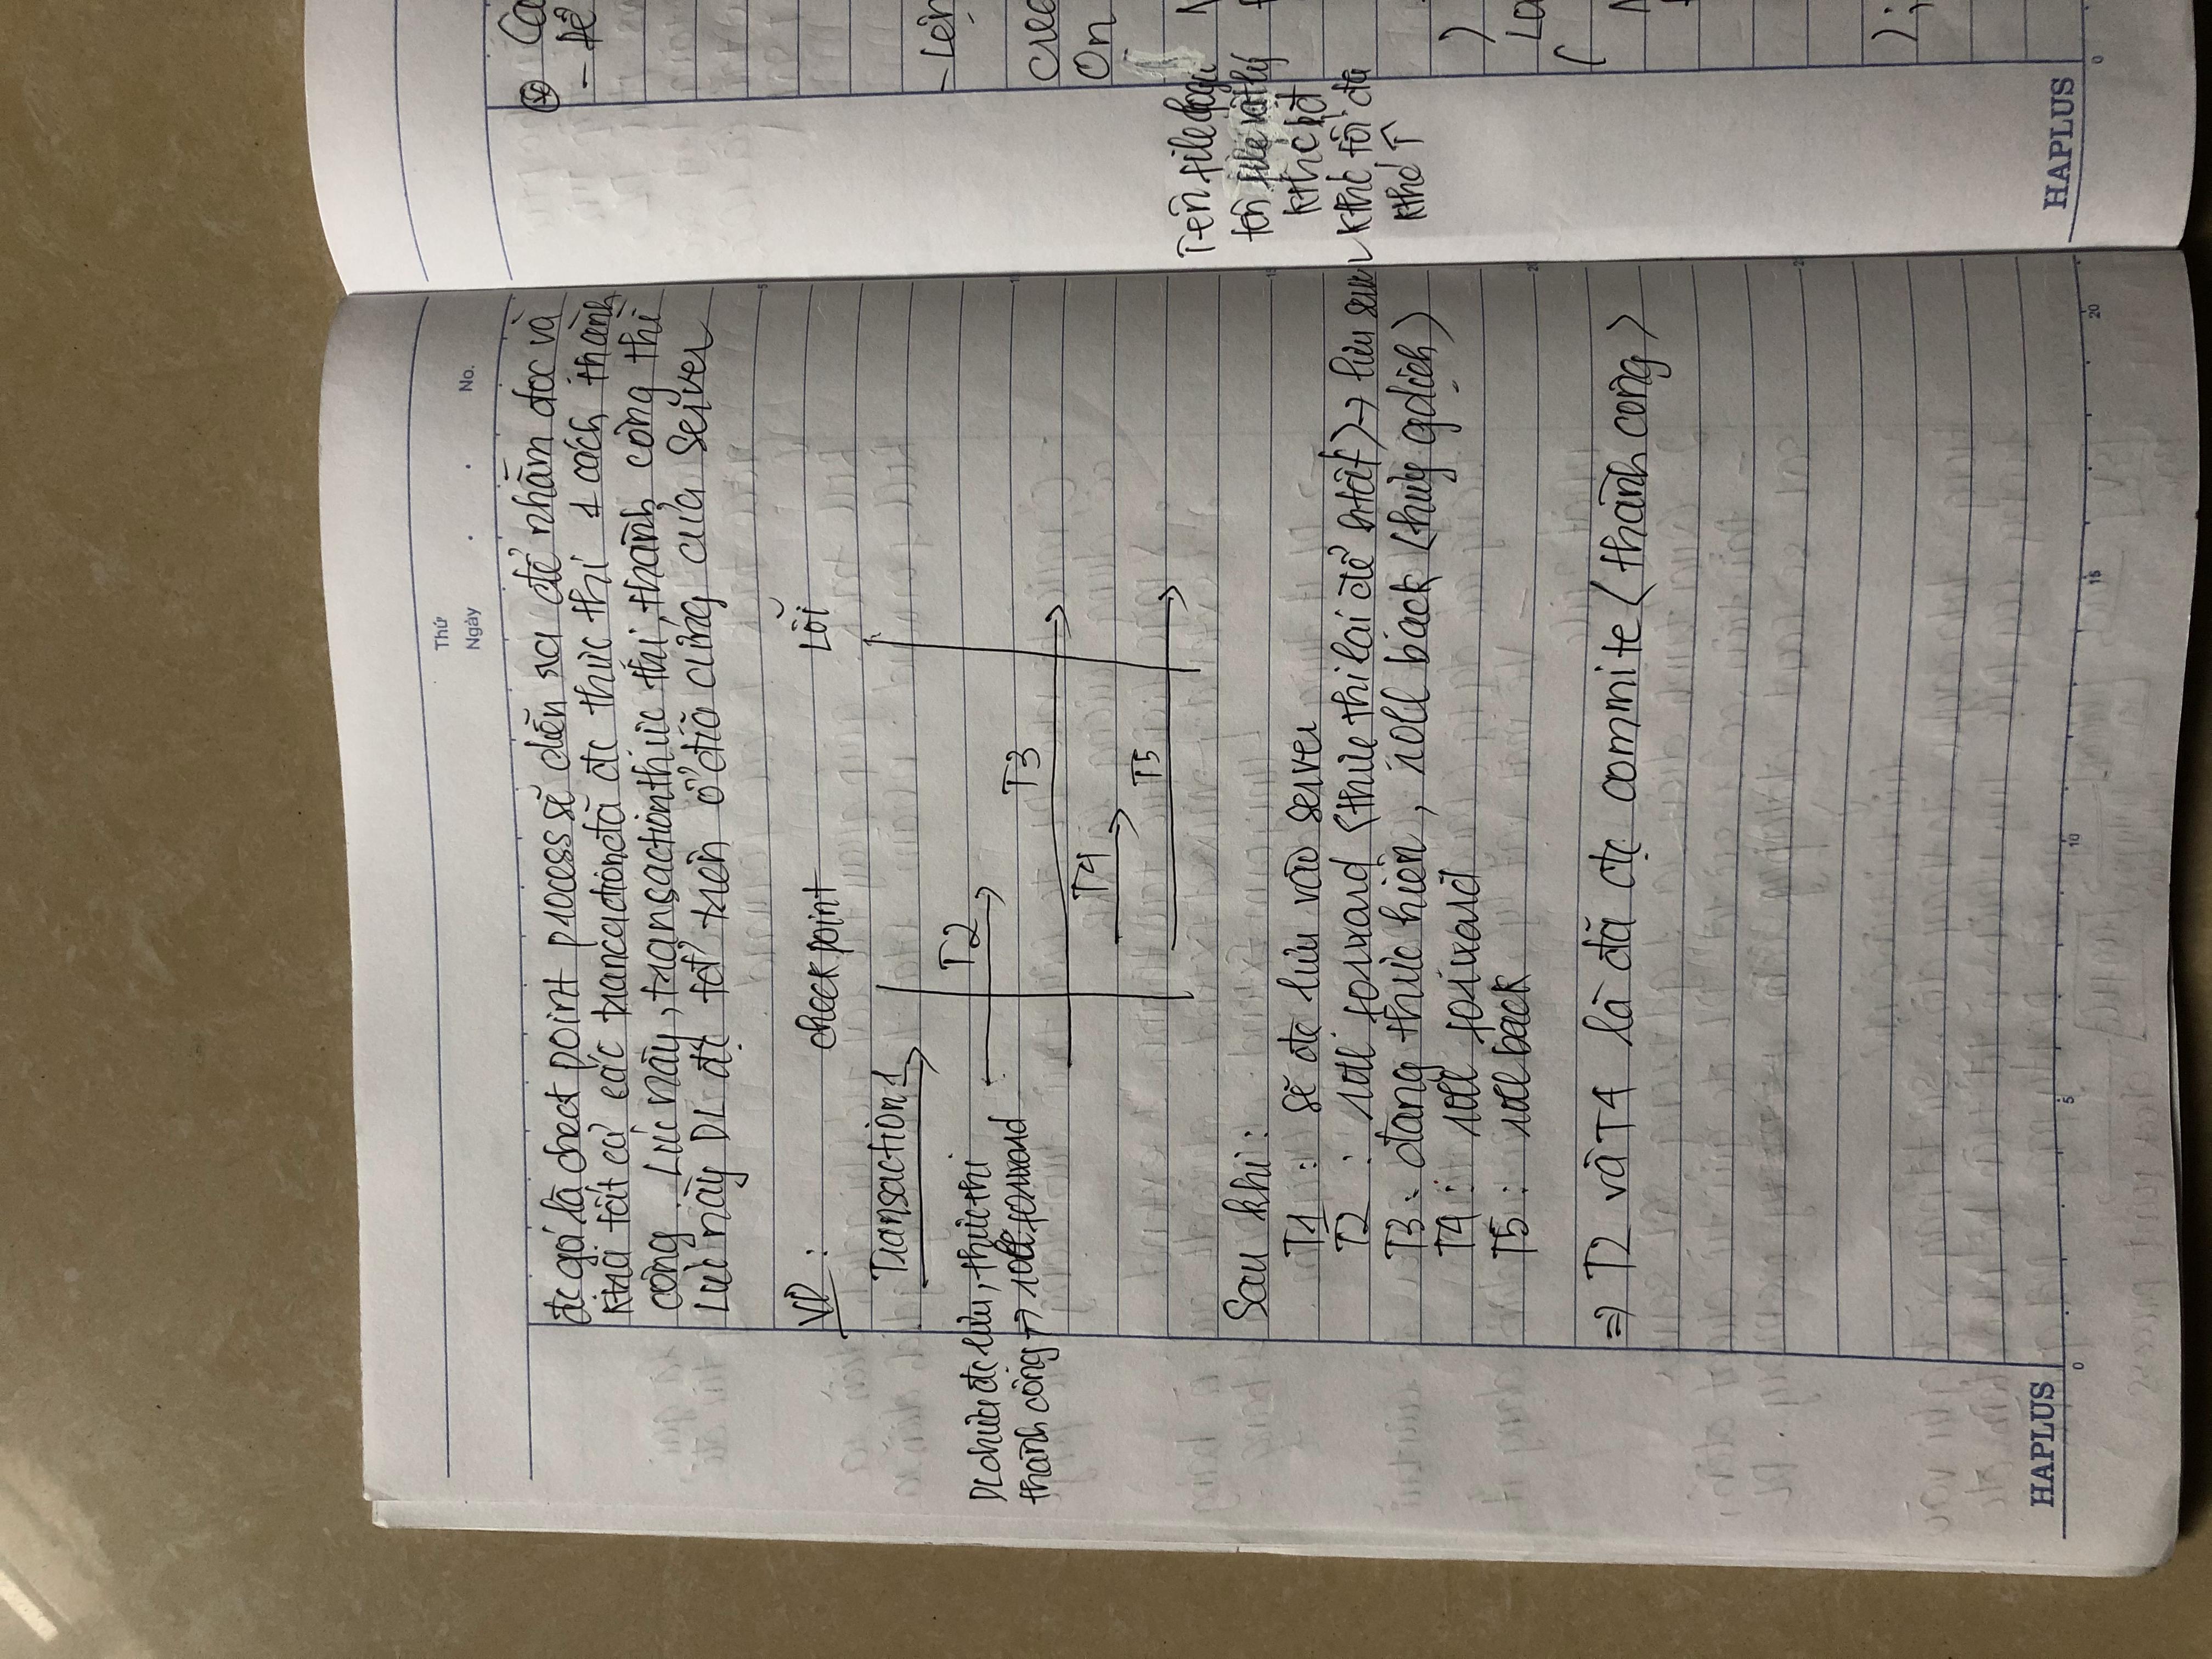 Thứ
Ngày . . No.
đc gọi là check point process sẽ diễn ra để nhằm đọc và
ktra tất cả các trancaction đã đc thực thi 1 cách thành
công. Lúc này, transaction thực thi, thành công thì
Lúc này DL đc tổ trên ổ đĩa cứng của Server
VD :
checkpoint
Lỗi
Transaction 1
T2
DL chưa đc lưu, thực thi
thành công → roll forward
T3
T4
T5
Sau khi :
T1 : sẽ đc lưu vào server
T2 : roll forward (thực thi lại để htất) → lưu server
T3 : đang thực hiện, roll back (hủy gdịch)
T4 : roll forward
T5 : roll back
⇒ T2 và T4 là đã đc commite (thành công)
HAPLUS
0 5 10 15 20
- Để
On
Tên file
tên file vật lý
kthc bđ
kthc tối đa
kthc ↑
)
(
);
HAPLUS
0